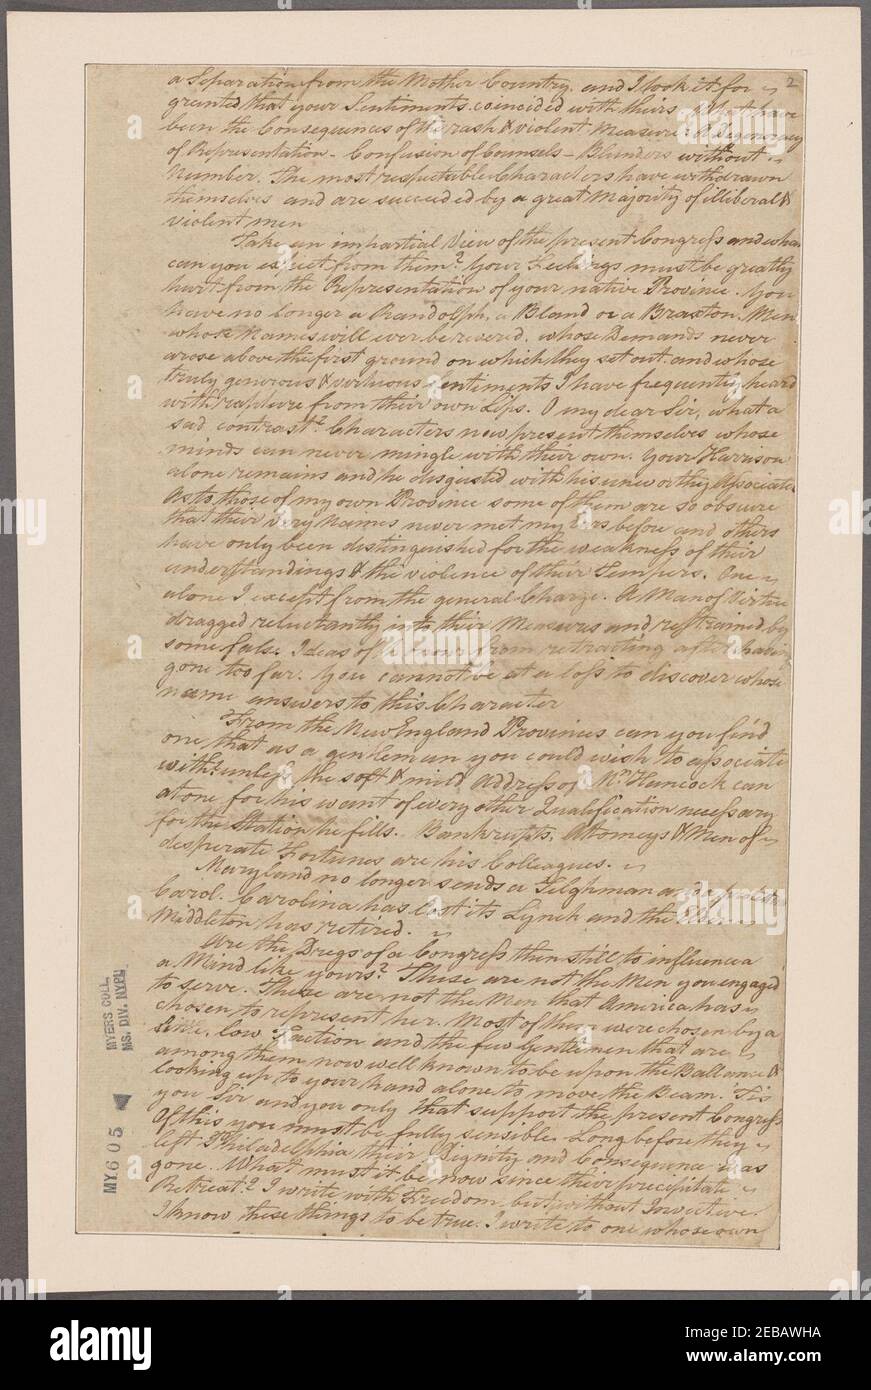 2
a Separation from the Mother Country. and I took it for
granted that your Sentiments coincided with theirs. What have
been the Consequences of the rash & violent Measures A Degeneracy
of Representation - Confusion of Counsels - Blunders without
Number. The most respectable Characters have withdrawn
themselves and are succeeded by a great Majority of illiberal &
violent men
Take an impartial View of the present Congress and what
can you expect from them? Your Feelings must be greatly
hurt from the Representation of your native Province. You
have no longer a Randolph, a Bland or a Braxton. Men
whose Names will ever be revered. whose Demands never
arose above the first ground on which they set out. and whose
truly generous & virtuous Sentiments I have frequently heard
with rapture from their own Lips. O my dear Sir, what a
sad contrast? Characters now present themselves whose
minds can never mingle with their own. Your Harrison
alone remains and he disgusted with his unworthy Associates
As to those of my own Province some of them are so obscure
that their very Names never met my Ears before and others
have only been distinguished for the weakness of their
understandings & the violence of their Tempers. One
alone I except from the general Charge. A Man of Virtue
dragged reluctantly into their Measures and restrained by
some false Ideas of Honour from retracting after having
gone too far. You cannot be at a loss to discover whose
name answers to this Character
From the New England Provinces can you find
one that as a gentleman you could wish to associate
with? unless the soft & mild Address of Mr. Hancock can
atone for his want of every other Qualification necessary
for the Station he fills. Bankrupts, Attorneys & Men of
desperate Fortunes are his Colleagues.
Maryland no longer sends a Tilghman and a
Carol. Carolina has lost its Lynch and the Elder
Middleton has retired.
Are the Dregs of a Congress then still to influence
a Mind like yours? These are not the Men you engaged
to serve. These are not the Men that America has
chosen to represent her. Most of them were chosen by a
little, low Faction and the few Gentlemen that are
among them now well known to be upon the Ballance &
looking up to your hand alone to move the Beam. 'Tis
you Sir and you only that support the present Congress
Of this you must be fully sensible. Long before they
left Philadelphia their Dignity and Consequence was
gone. What must it be now since their precipitate
Retreat? I write with Freedom but without Invective.
I know these things to be true. I write to one whose own
MYERS COLL.
MS. DIV. NYPL
MY.605
alamy
www.alamy.com
2EBAWHA